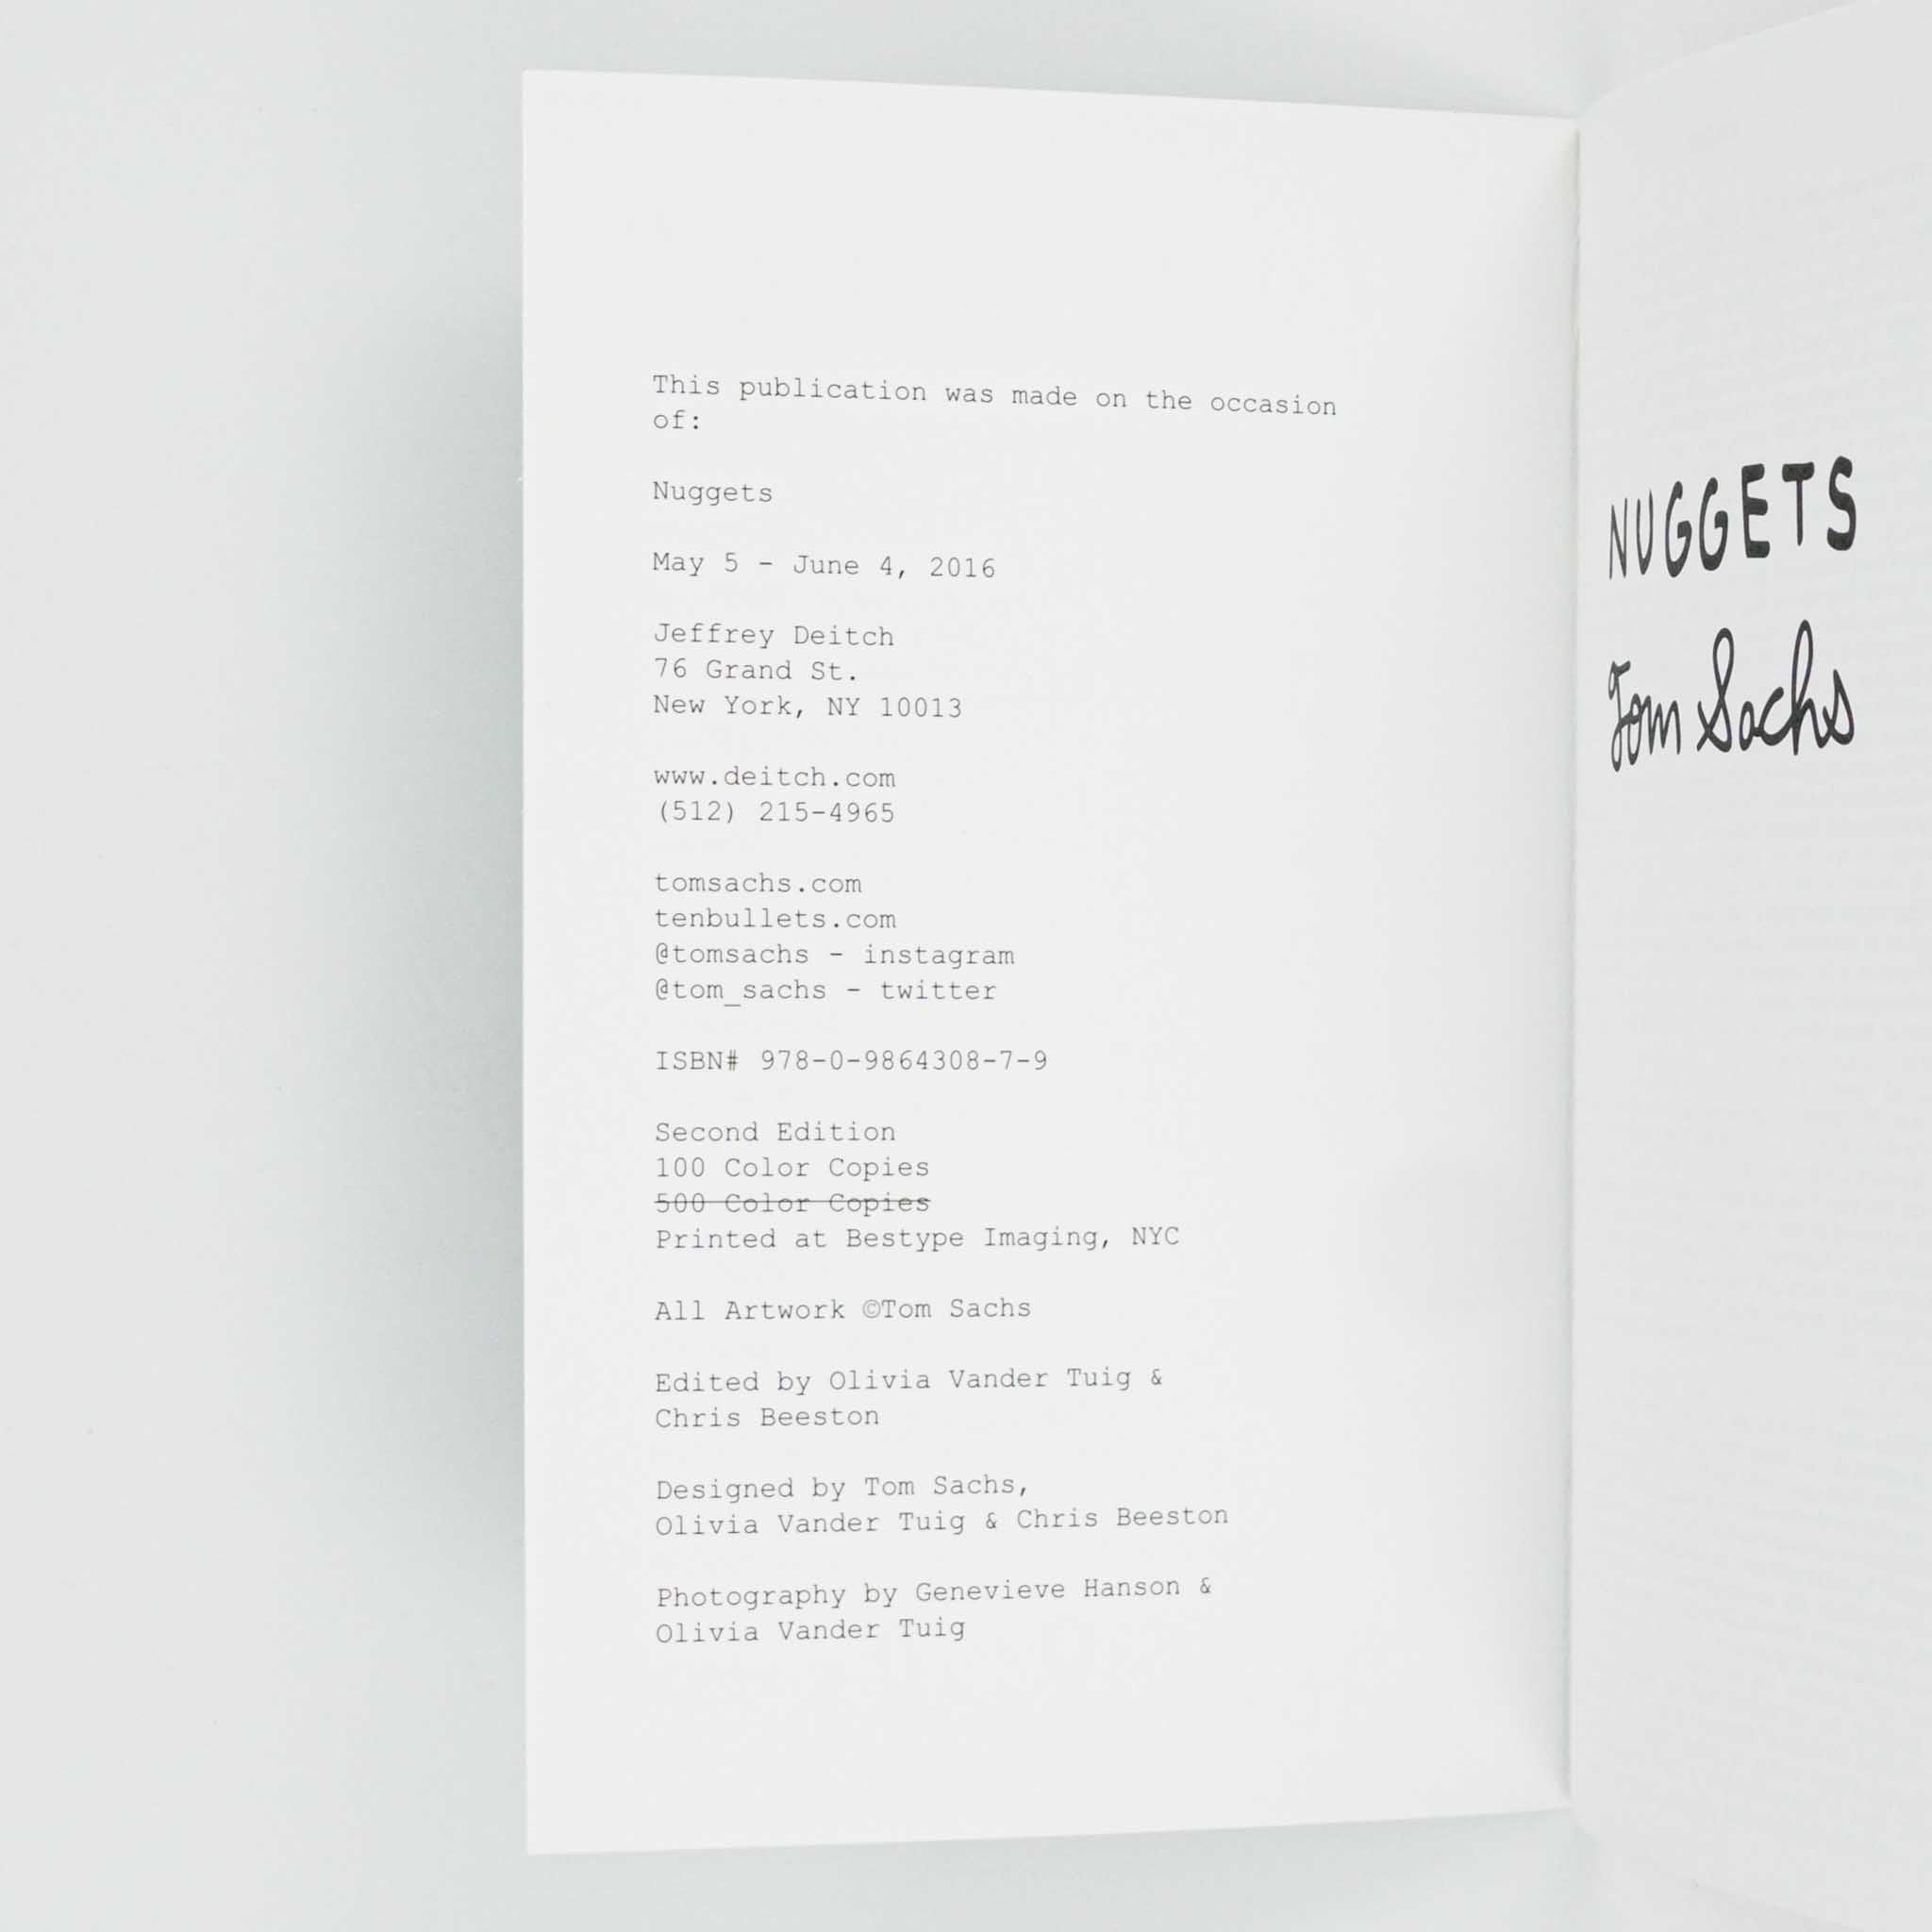 This publication was made on the occasion
of:
Nuggets
May 5 - June 4, 2016
Jeffrey Deitch
76 Grand St.
New York, NY 10013
www.deitch.com
(512) 215-4965
tomsachs.com
tenbullets.com
@tomsachs - instagram
@tom_sachs - twitter
ISBN# 978-0-9864308-7-9
Second Edition
100 Color Copies
500 Color Copies
Printed at Bestype Imaging, NYC
All Artwork ©Tom Sachs
Edited by Olivia Vander Tuig &
Chris Beeston
Designed by Tom Sachs,
Olivia Vander Tuig & Chris Beeston
Photography by Genevieve Hanson &
Olivia Vander Tuig
NUGGETS
Tom Sachs